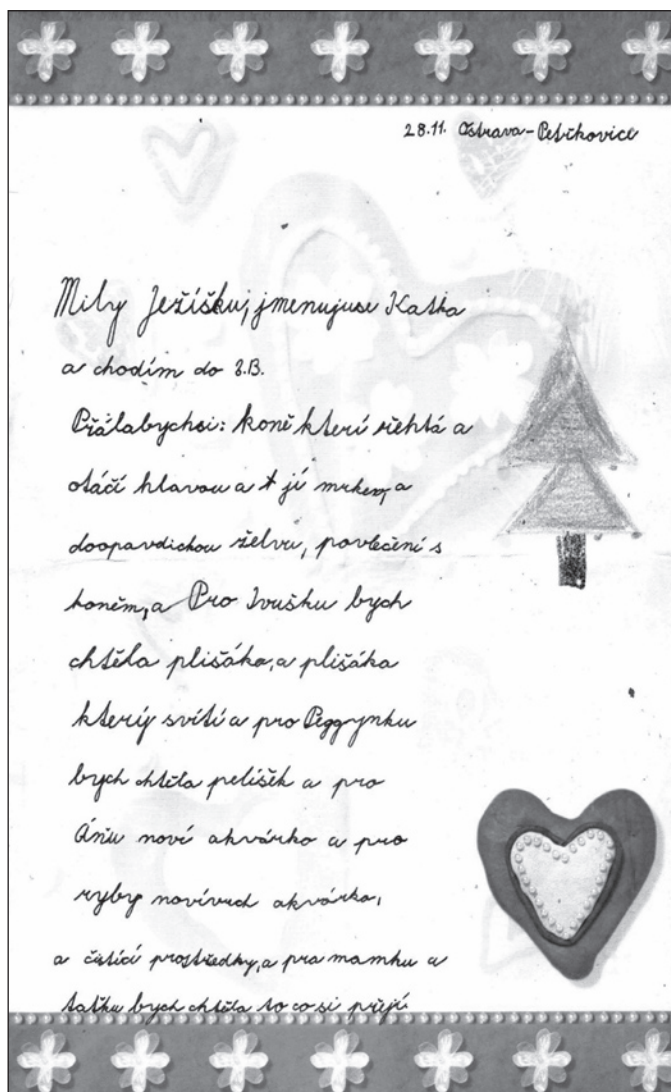 28.11. Ostrava-Petřkovice
Milý Ježíšku, jmenujuse Katka
a chodím do 3.B.
Přálabychsi: koně kterí řehtá a
otáčí hlavou a jí mrkev, a
doopavdickou želvu, povlečení s
koněm, a Pro Ivušku bych
chtěla plišáka, a plišáka
který svítí a pro Peggynku
bych chtěla pelíšek a pro
Áňu noví akvárko a pro
ryby novívrch akvárka,
a čistící prostředky, a pra mamku a
taťku bych chtěla to co si přejí